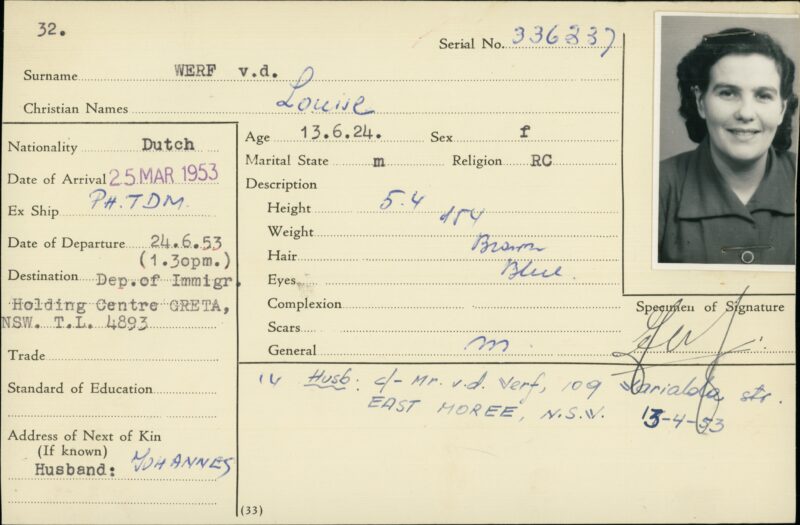 32.
Serial No. 336237
Surname WERF v.d.
Christian Names Louise
Nationality Dutch
Date of Arrival 25 MAR 1953
Ex Ship PH. TDM.
Date of Departure 24.6.53
(1.30pm.)
Destination Dep.of Immigr.
Holding Centre GRETA,
NSW. T.L. 4893
Trade
Standard of Education
Address of Next of Kin
(If known)
Husband: JOHANNES
Age 13.6.24. Sex f
Marital State m Religion RC
Description
Height 5.4
Weight 154
Hair Brown
Eyes Blue.
Complexion
Scars
General m
Specimen of Signature
14 Husb: c/- Mr. v.d. Verf, 109 Warialda str.
EAST MOREE, N.S.W. 13-4-53
(33)